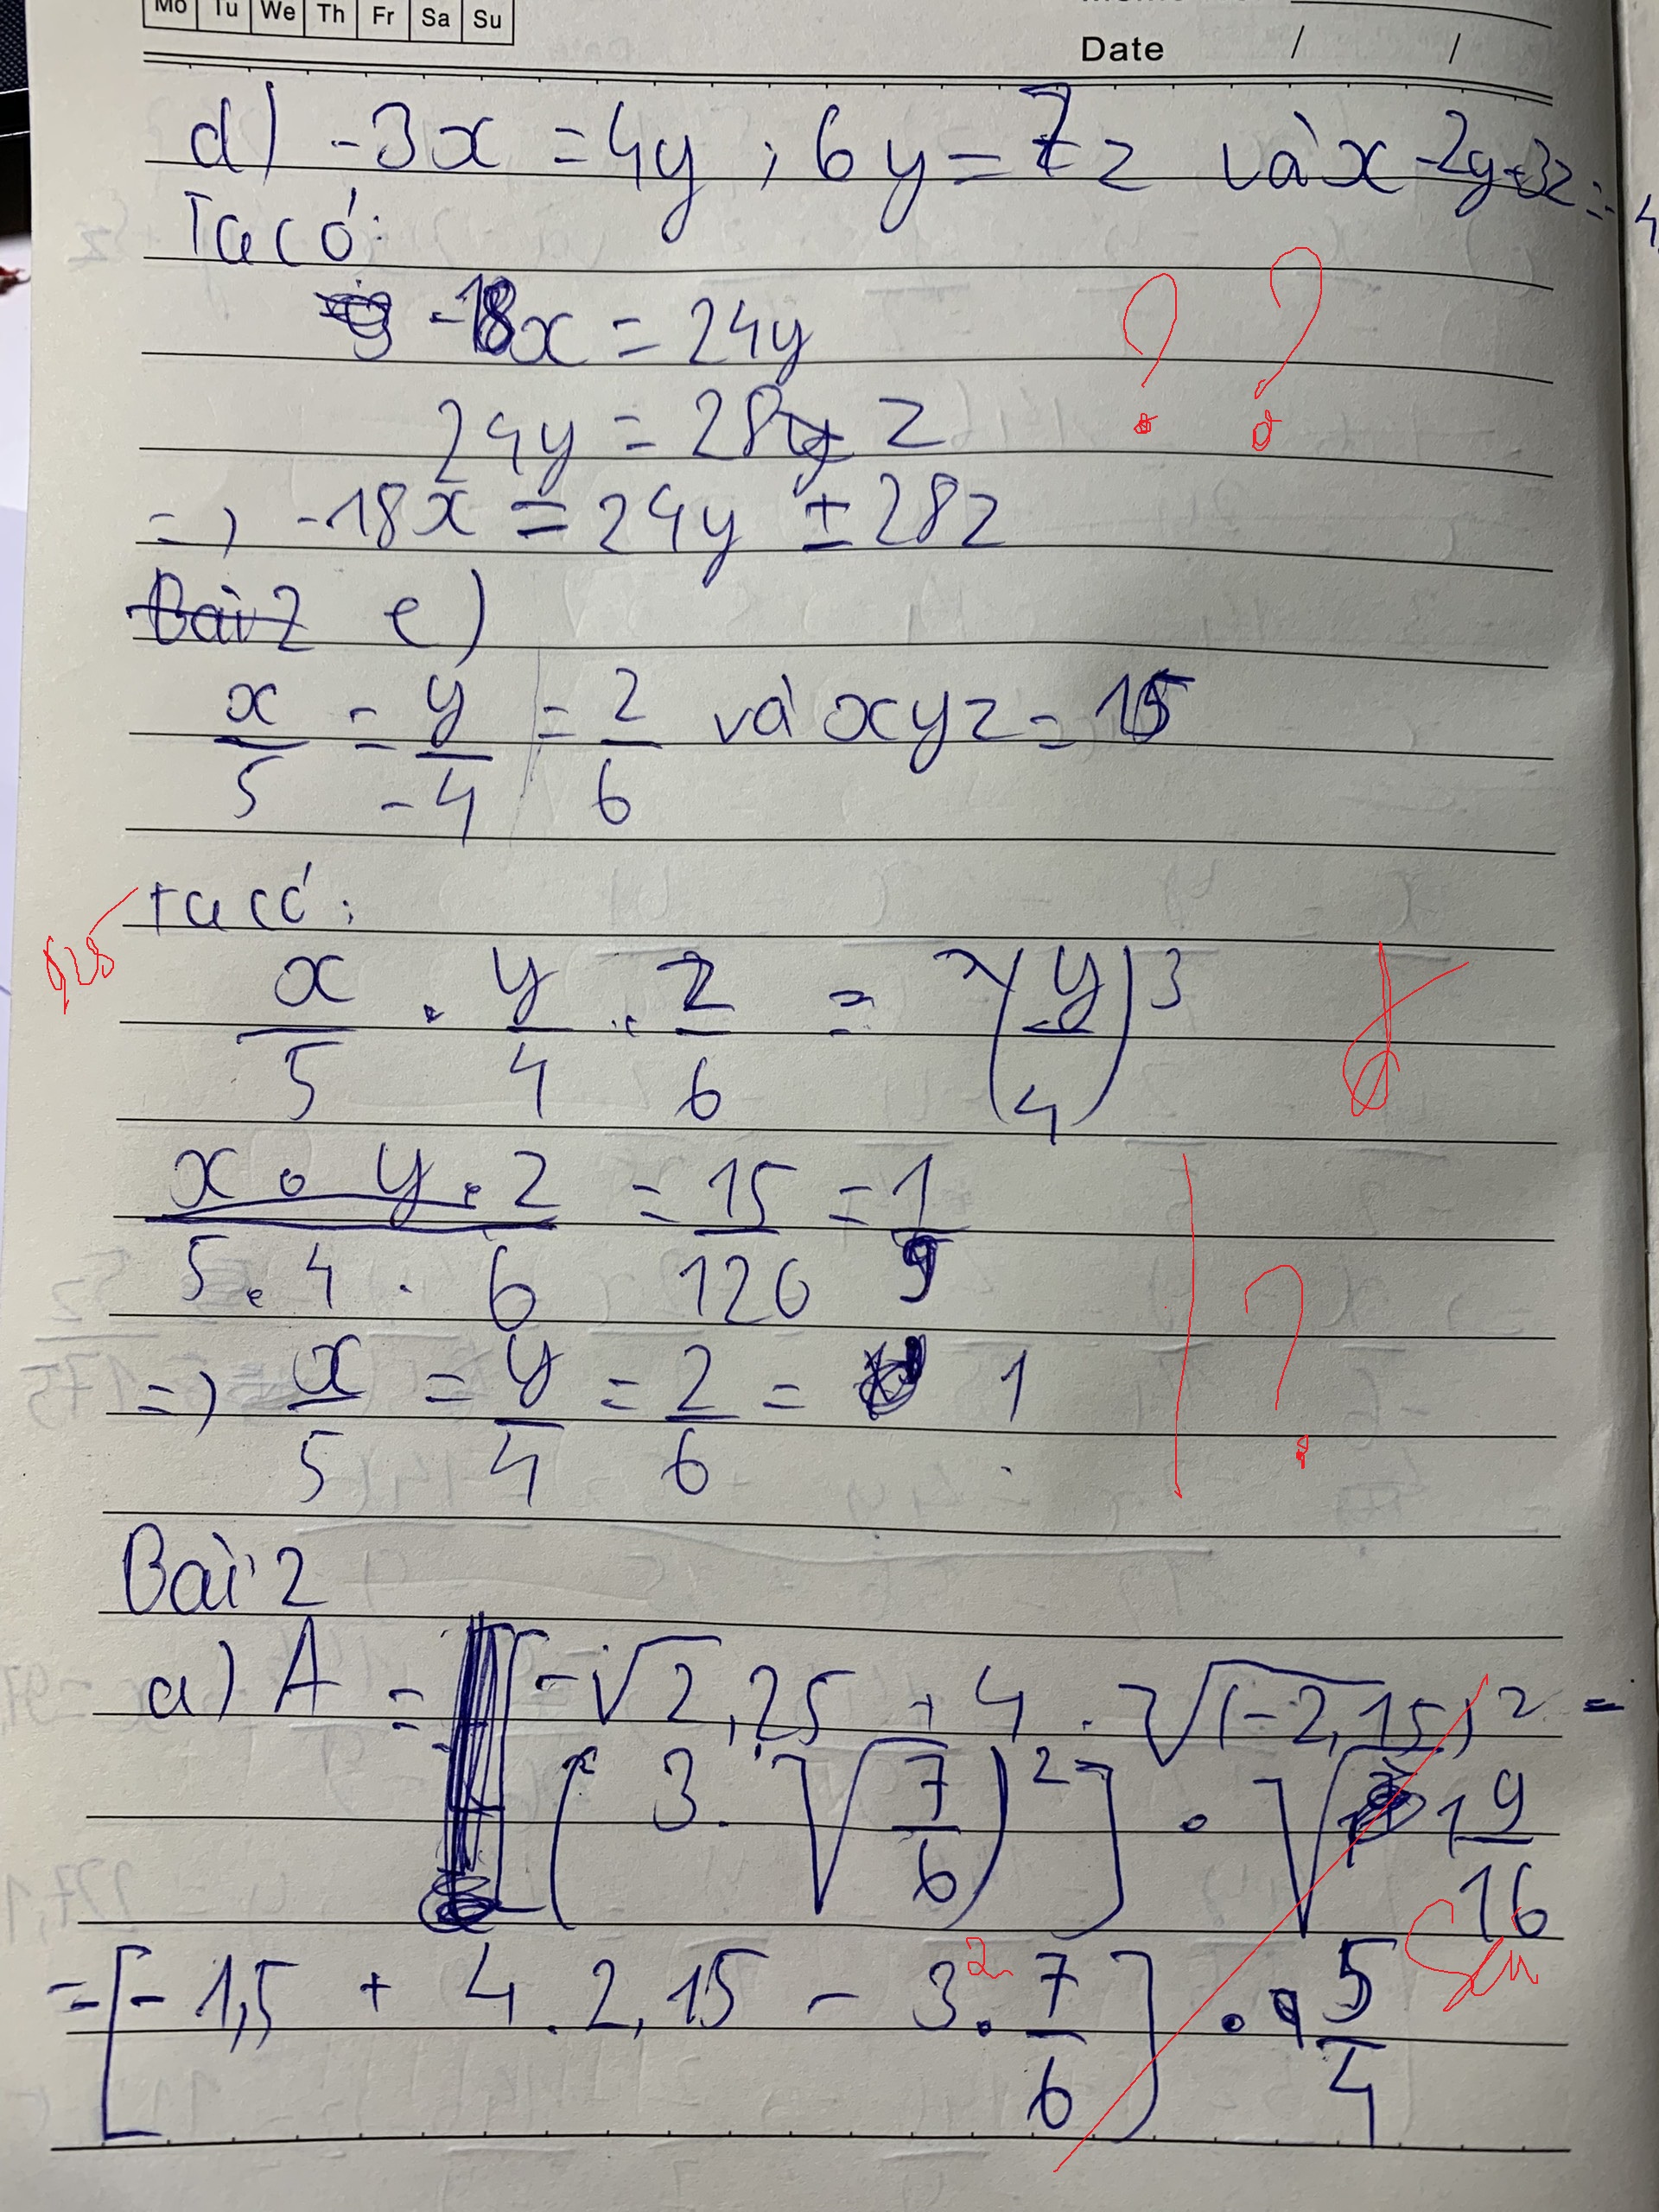 Mo Tu We Th Fr Sa Su
Date / /
d) -3x = 4y ; 6y = 7z và x - 2y + 3z = 4
Ta có:
-18x = 24y
24y = 28z
=> -18x = 24y = 28z
Bài 2 e)
x/5 = y/-4 = z/6 và xyz = 15
Ta có:
x/5 . y/4 . z/6 = (y/4)^3
x . y . z / 5 . 4 . 6 = 15/120 = 1
=> x/5 = y/4 = z/6 = 1
?
Bài 2
a) A = [-√2,25 + 4 . √(-2,15)² =
(3 . √7/6)²] . √1 9/16
Sai
= [-1,5 + 4 . 2,15 - 3² . 7/6] . 5/4